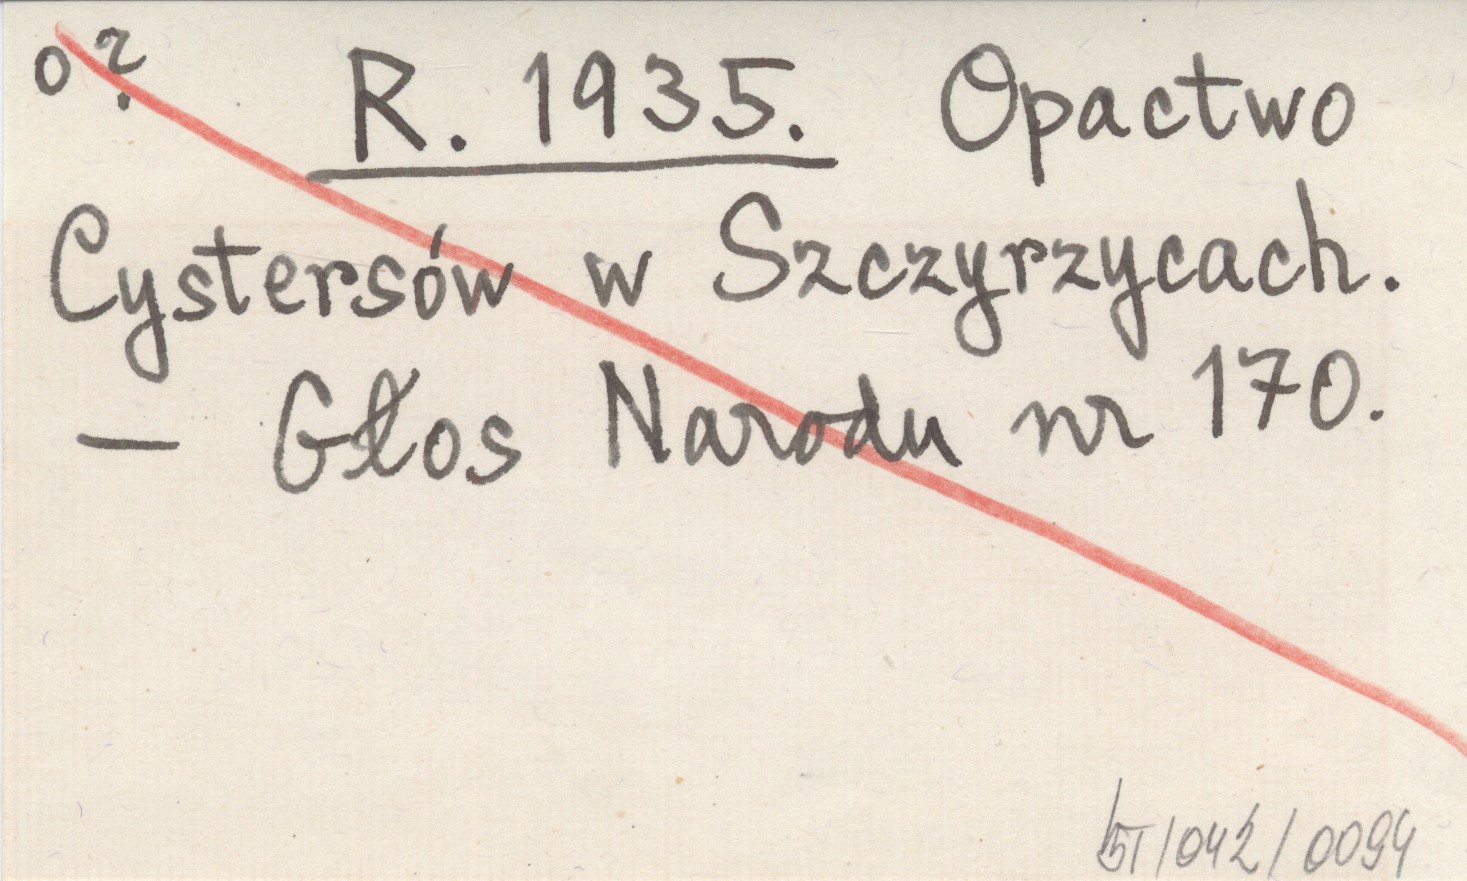 o ?
R. 1935. Opactwo
Cystersów w Szczyrzycach.
— Głos Narodu nr 170.
BI/042/0094